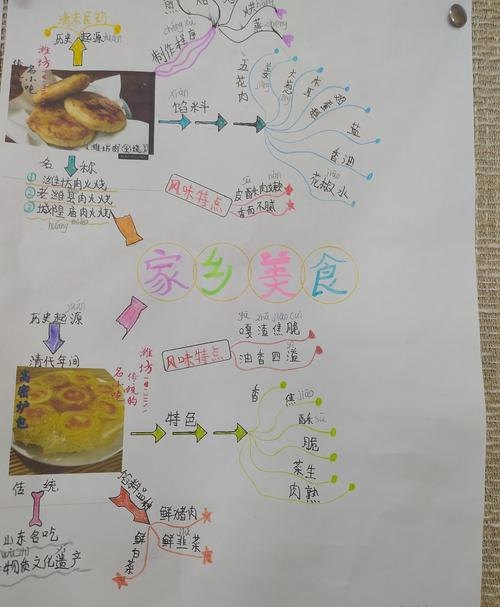 清末民初
历史起源
yuán
制作程序
chéng xù
烘
蒸
zhēng
潍坊
传统名小吃
五花肉
姜
大葱
木耳
鸡蛋
盐
香油
花椒水
jiāo
xiàn
馅料
名称
①潍坊肉火烧
②老潍县肉火烧
③城隍庙肉火烧
huáng miào
风味特点
sū nèn
皮酥肉嫩
香而不腻
家乡美食
yuán
历史起源
清代年间
潍坊
传统的
名小吃
风味特点
gā zhā jiāo cuì
嘎渣焦脆
油香四溢
高密炉包
特色
香
焦 jiāo
酥 sū
脆
菜生
肉熟
传统
馅料
鲜猪肉
鲜韭菜
鲜白菜
山东名吃
物质文化遗产